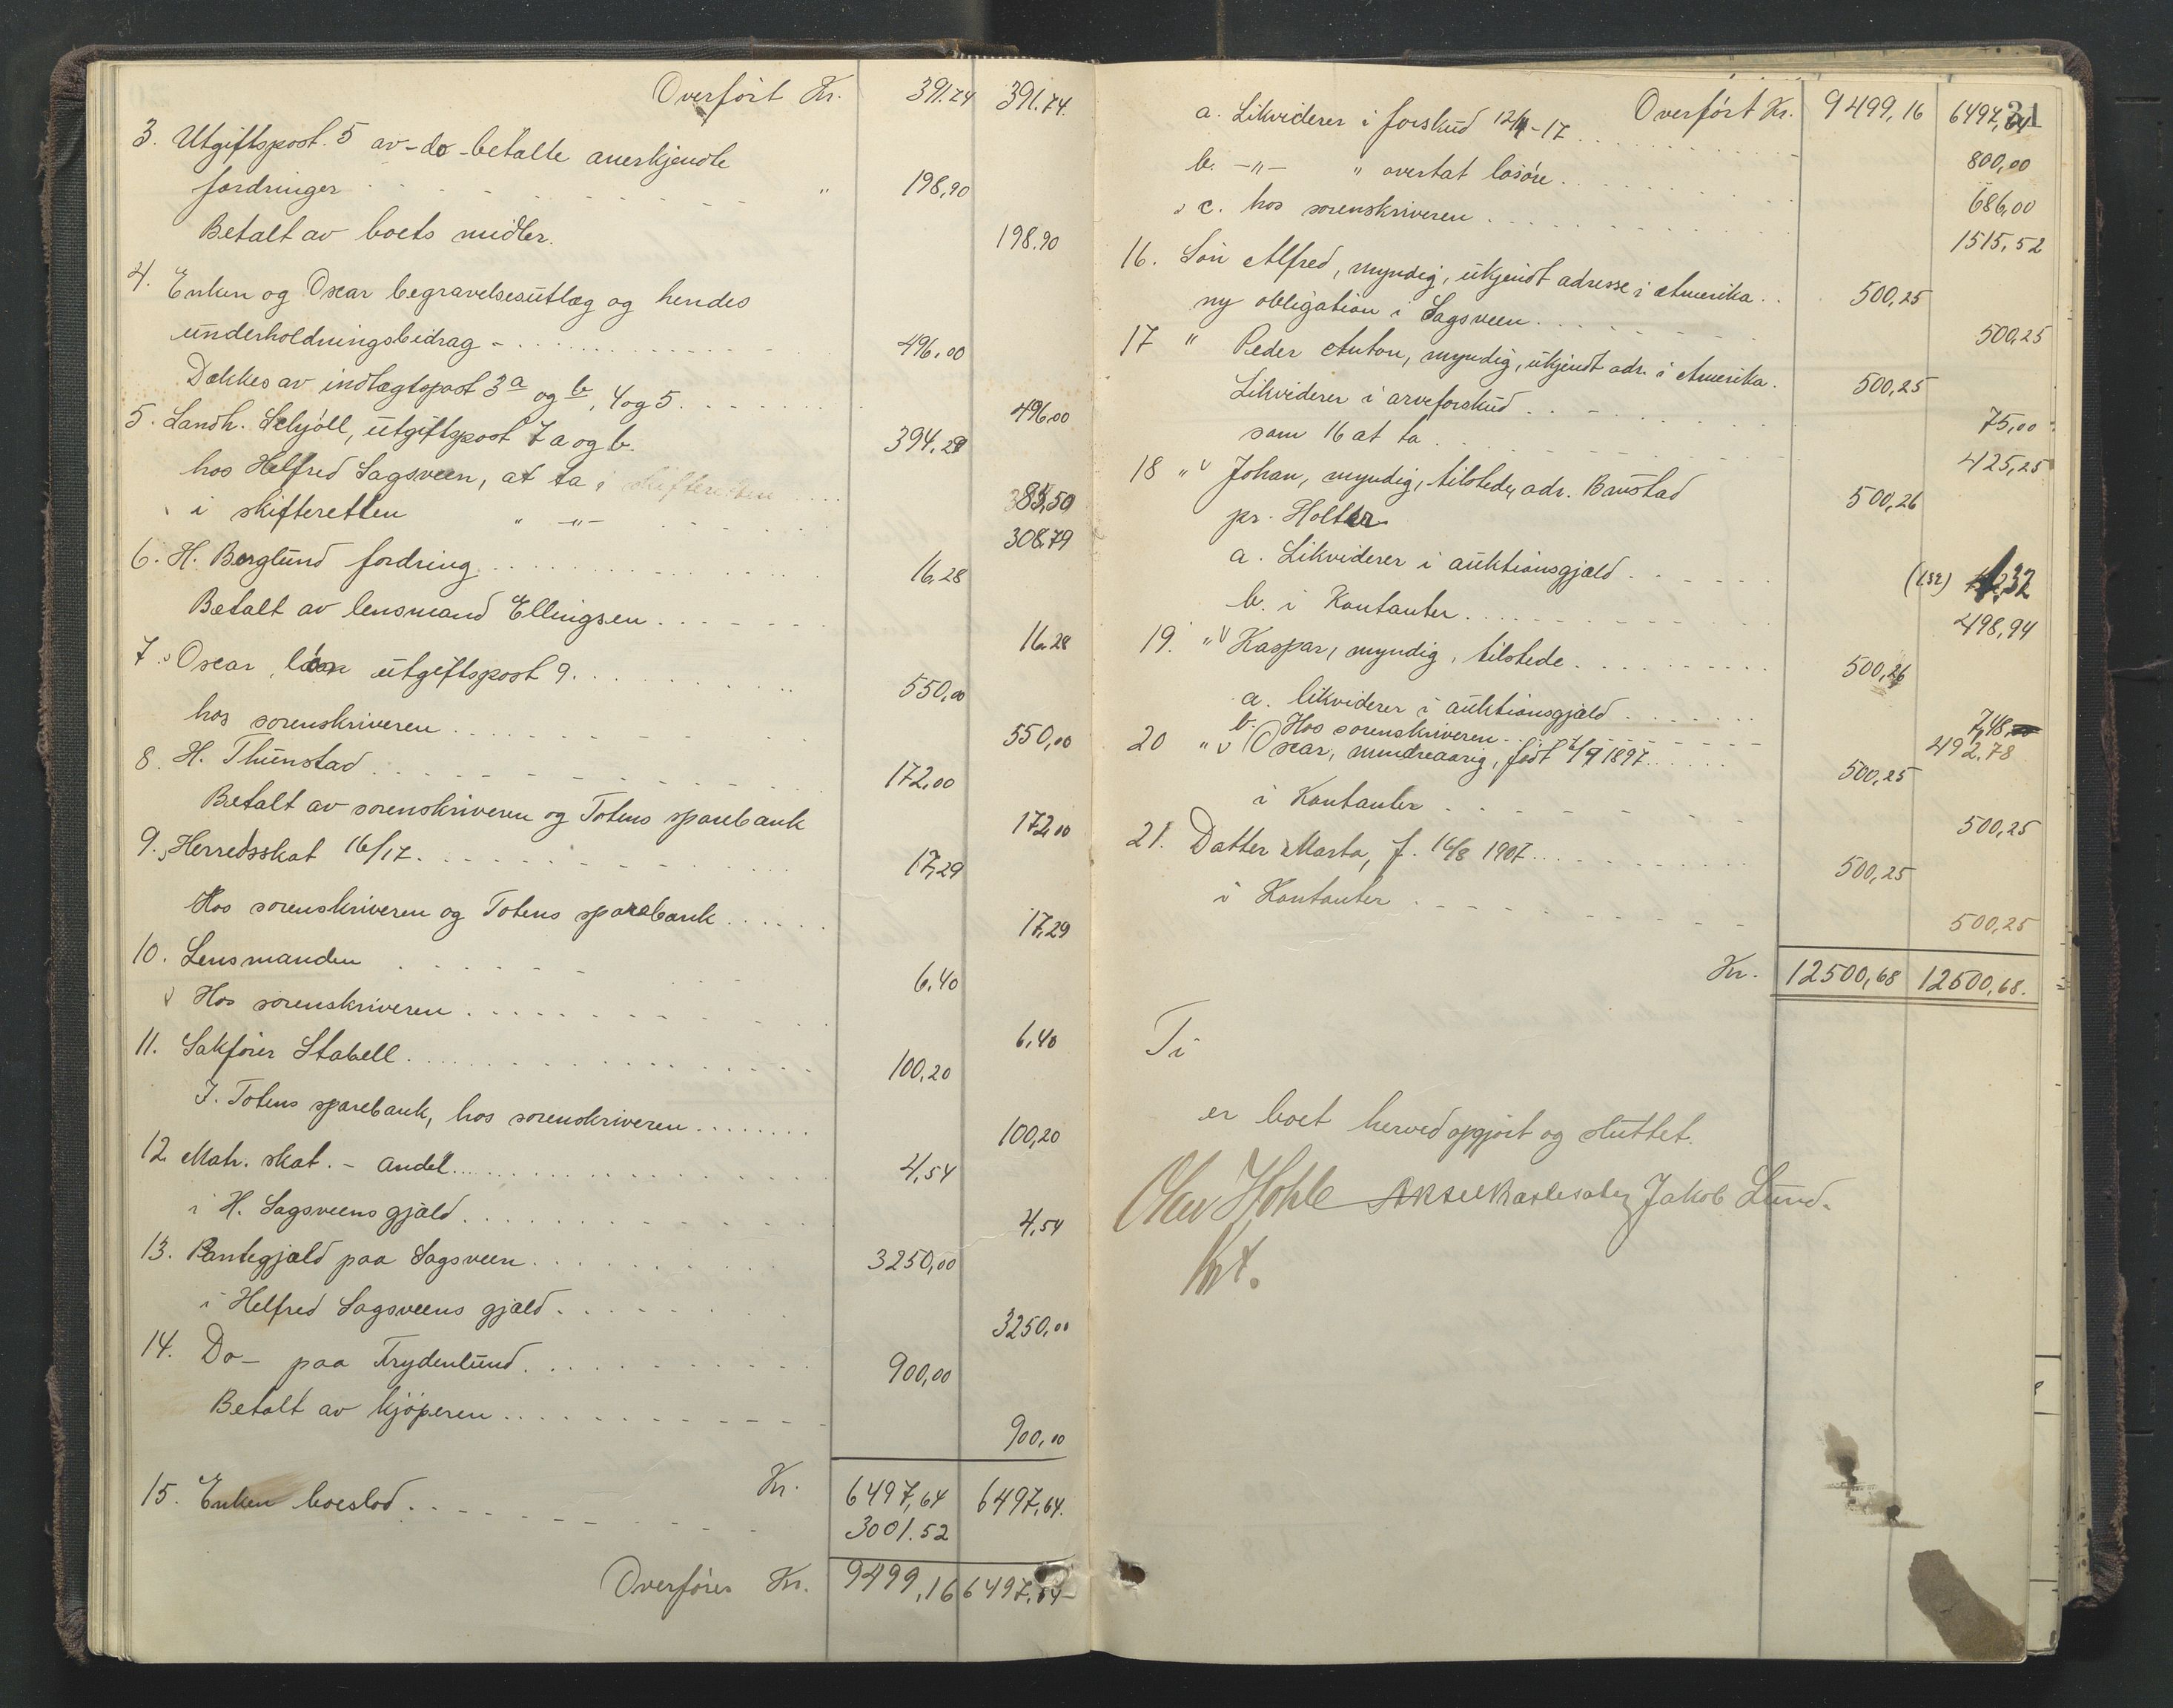 Overført Kr. 391.74 391.74
3. Utgiftspost. 5 av-do-betalte anerkjendte
fordringer " 198,90
Betalt av boets midler. 198.90
4. Enken og Oscar begravelsesutlæg og hendes
underholdningsbidrag 496,00
Dækkes av indtægtspost 3a og b, 4 og 5. 496,00
5. Landh. Schjöll, utgiftspost 7 a og b. 394,29
hos Helfred Sagsveen, at ta i skifteretten 85,50
i skifteretten " -"- 308,79
6. H. Berglund fordring 16,28
Betalt av lensmand Ellingsen 16.28
7. Oscar, lön utgiftspost 9. 550,00
hos sorenskriveren 550,00
8. H. Thunstad 172,00
Betalt av sorenskriveren og Totens sparebank 172,00
9. Herredsskat 16/17. 17,29
Hos sorenskriveren og Totens sparebank 17,29
10. Lensmanden 6.40
Hos sorenskriveren 6,40
11. Sakfører Stabell 100,20
I. Totens sparebank, hos sorenskriveren 100,20
12. Matr. skat. - andel 4,54
i H. Sagsveens gjæld 4,54
13. Pantegjæld paa Sagsveen 3250,00
i Helfred Sagsveens gjæld 3250,00
14. Do- paa Frydenlund 900,00
Betalt av kjøperen 900,00
Kr. 6497,64 6497,64.
15. Enken boeslod 3001.52
Overføres Kr. 9499,16 6497,64
31
Overført Kr. 9499,16 6497,64
a. Likviderer i forskud 12/4-17 800,00
b. -"- " overtat løsøre 686,00
c. hos sorenskriveren 1515,52
16. Søn Alfred, myndig, ukjendt adresse i Amerika 500,25
ny obligation i Sagsveen 500,25
17 " Peder Anton, myndig, ukjendt adr. i Amerika. 500,25
Likviderer i arveforskud 75,00
som 16 at ta 425,25
18 " Johan, myndig, tilstede, adr. Brustad 500,26
pr. Holter
a. Likviderer i auktionsgjæld (132) 1,32
b. i Kontanter 498,94
19. " Kaspar, myndig, tilstede 500,26
a. likviderer i auktionsgjæld 7,48
b. Hos sorenskriveren 492.78
20 " Oscar, mindreaarig, født 1897 500,25
i Kontanter 500,25
21. Datter Marta, f. 16/8 1907 500,25
i Kontanter 500,25
Kr. 12500,68 12500,68.
Ti
er boet herved opgjort og sluttet.
Jakob Lund.
kst.